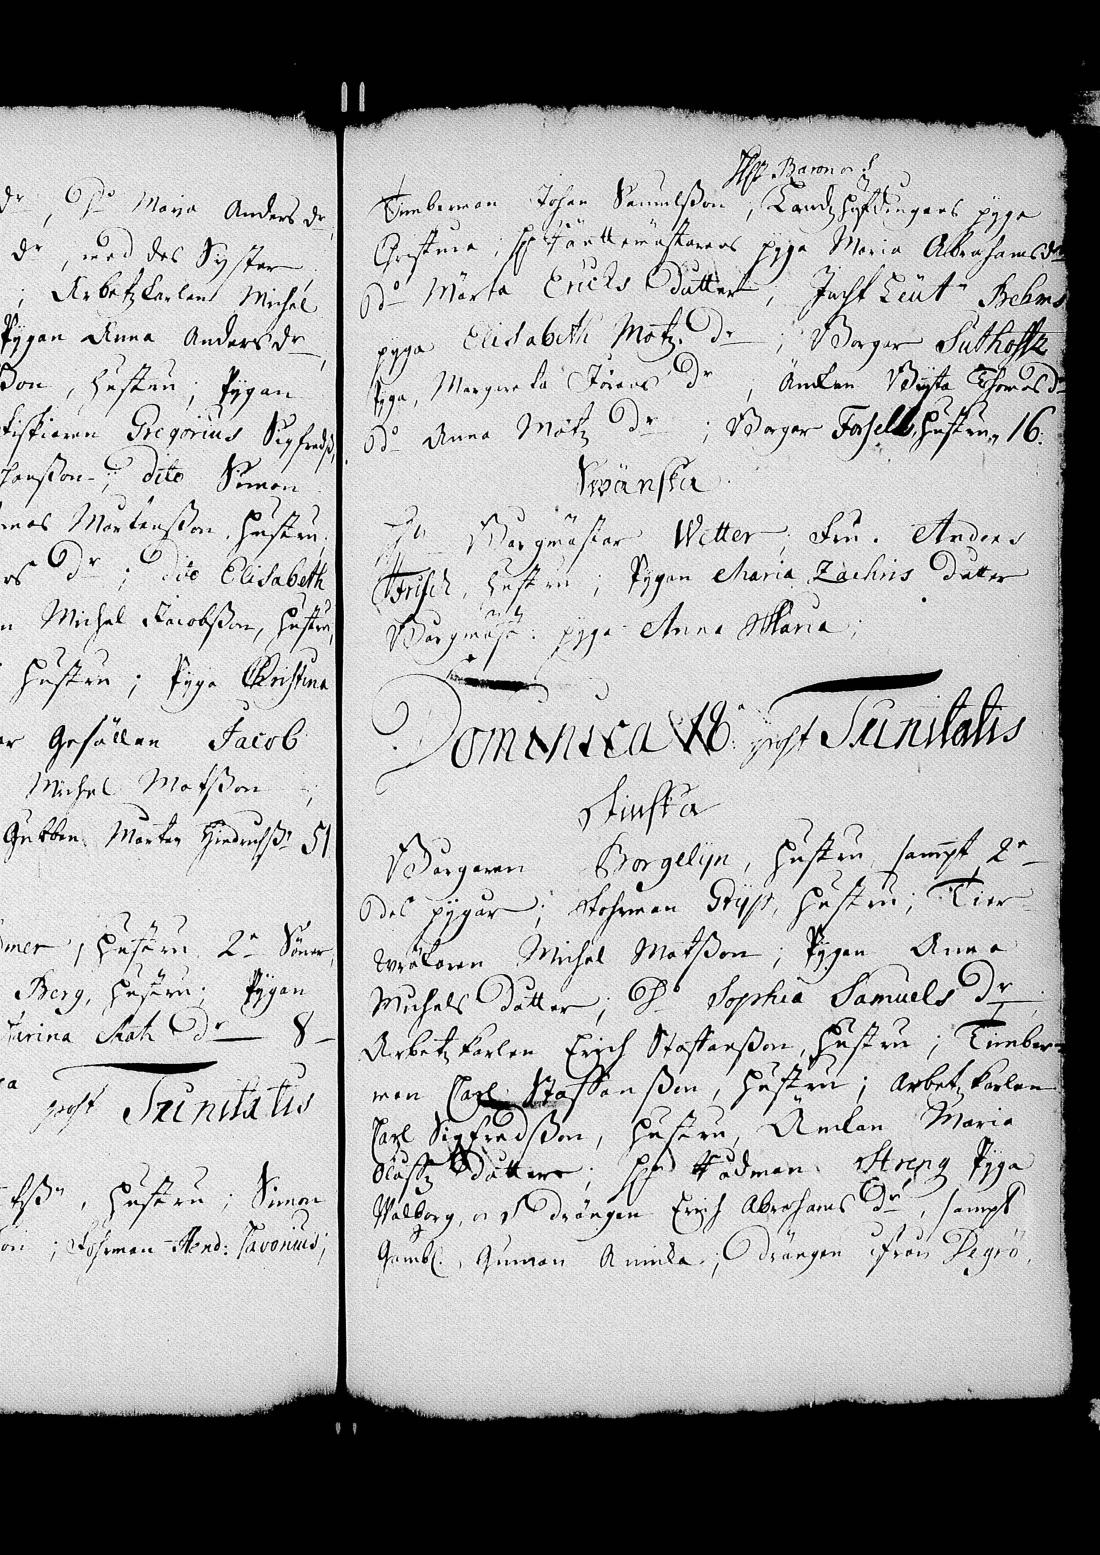 dr, Do Maria Anders dr,
dr, med des Syster,
; Arbetzkarlens Michel
Pygan Anna Anders dr,
ßon, hustru; Pygan
fiskaren Gregorius Sigfredß,
hanßon; dito Simon
mas Mårtenßon, hustru;
rs dr; dito Elisabeth
n Michel Jacobßon, hustru,
hustru; Pyga Christina
er Gesällen Jacob
Michel Matßon;
Gubben Mårten Hindrichß 51
mer, hustru 2e Söner,
Berg, hustru; Pygan
Carina Math dr 8
post Trinitatis
tßn, hustru; Simon
on; Fohrman Hend: Favonius;
Hr Baron o:
Timberman Johan Samuelßon; Landzhöfdingens pyga
Christina; Hr Räntemästarens pyga Maria Abrahams dr
do Märta Erichs dotter; Leut Brehms
pyga Elisabeth Matz dr; Borgar Suthoffz
Pyga, Margareta Jörans dr; Änkan Thomas dr
do Anna Matz dr; Borgar Forsell, hustru, 16.
Swänska
Hr Borgmästar Wetter; Fru. Anders
Frisch, hustru; Pygan Maria Zachris dotter
Borgmäst: pyga Anna Maria;
Dominica 18a post Trinitatis
Finska
Borgaren Borgelijn, hustru, sampt 2e
des pygor; Fohrman Grijs, hustru; Tier-
wräkaren Michel Matßon; Pygan Anna
Michels dotter; Do Sophia Samuels dr;
Arbetzkarlen Erich Staffanßon, hustru; Timber-
man Carl Staffanßon, hustru; Arbetzkarlen
Carl Sigfredßon, hustru, Änkan Maria
Olufz dotter; Hr Rådman Streng Pyga
Walborg, och drängen Erich Abrahams dr, sampt
Gambl. Gumman Annika; drängen från Degerö.